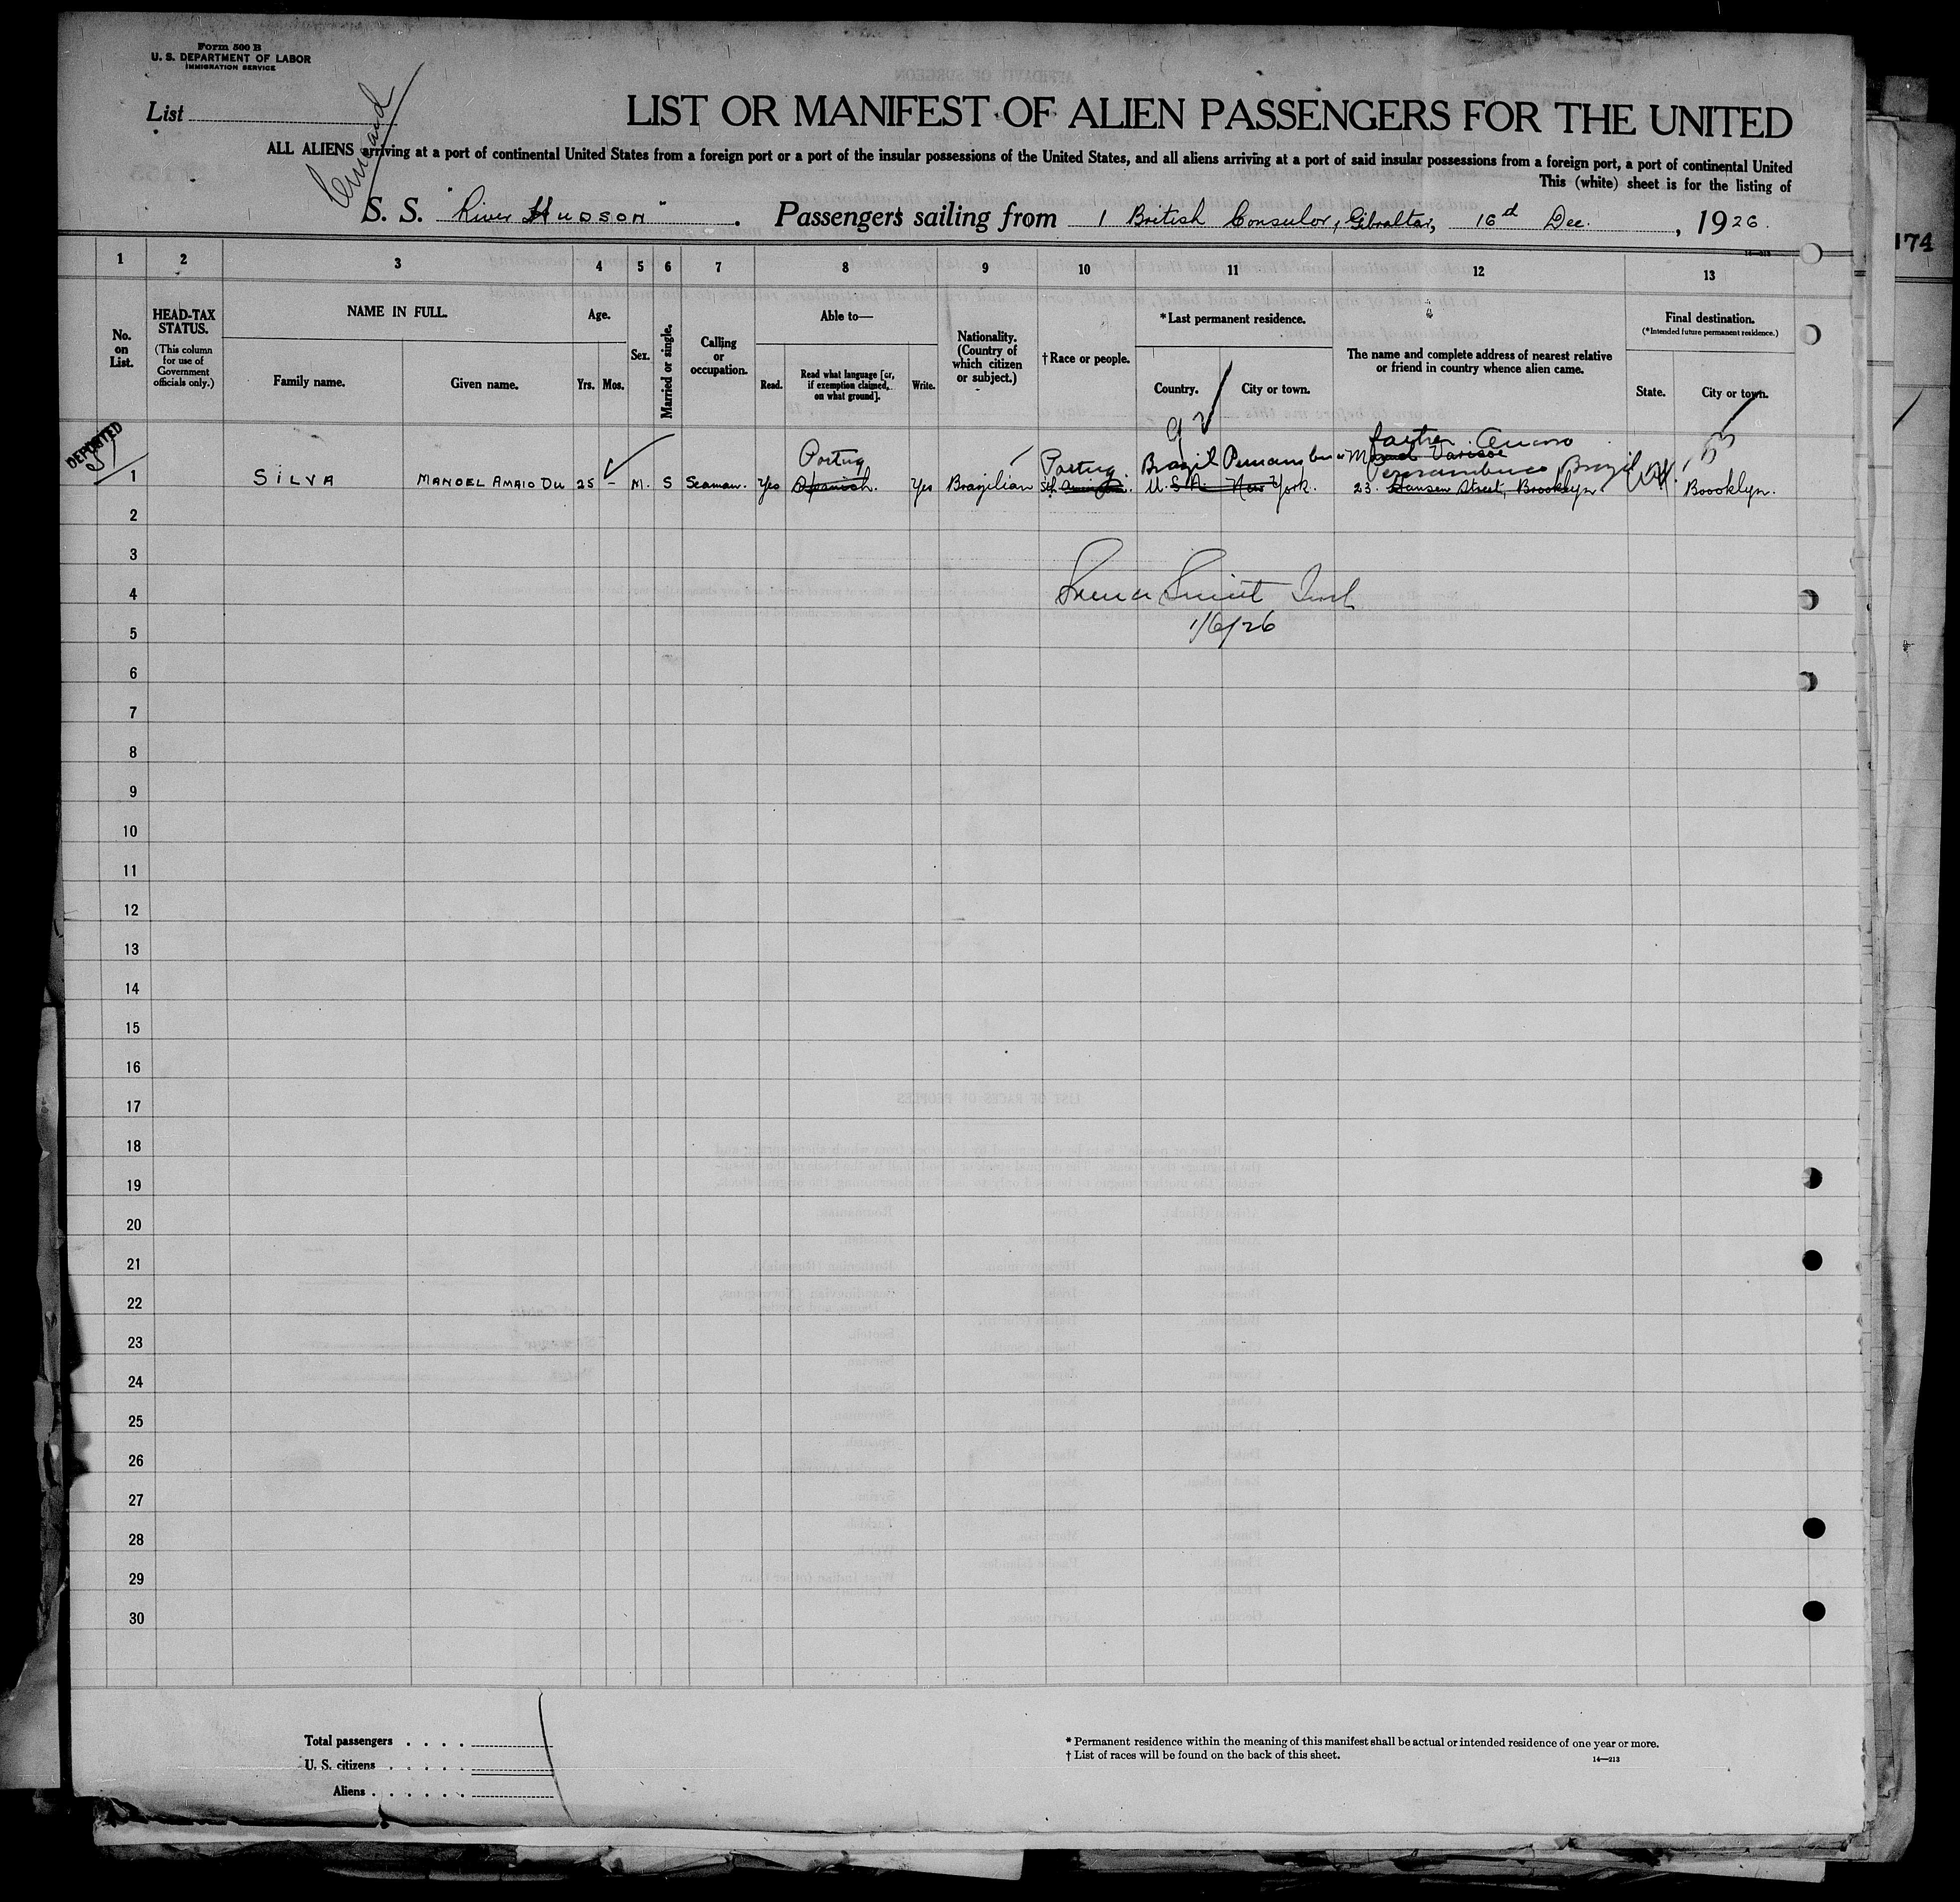 Form 500 B
U. S. DEPARTMENT OF LABOR
IMMIGRATION SERVICE
List
LIST OR MANIFEST OF ALIEN PASSENGERS FOR THE UNITED
ALL ALIENS arriving at a port of continental United States from a foreign port or a port of the insular possessions of the United States, and all aliens arriving at a port of said insular possessions from a foreign port, a port of continental United
This (white) sheet is for the listing of
S. S. "River Hudson". Passengers sailing from 1 British Consulor, Gibraltar, 16d Dec. , 1926.
174
14-213
1 2 3 4 5 6 7 8 9 10 11 12 13
No. on List.
HEAD-TAX STATUS.
(This column for use of Government officials only.)
NAME IN FULL.
Family name.
Given name.
Age.
Yrs. Mos.
Sex.
Married or single.
Calling or occupation.
Able to—
Read.
Read what language [or, if exemption claimed, on what ground].
Write.
Nationality. (Country of which citizen or subject.)
†Race or people.
*Last permanent residence.
Country.
City or town.
The name and complete address of nearest relative or friend in country whence alien came.
Final destination.
(*Intended future permanent residence.)
State.
City or town.
DEPORTED
father
Portug Portug. Brazil Pernambuco Pernambuco Brazil
1 SILVA MANOEL AMAIO DU 25 - M. S Seaman. Yes Spanish. Yes Brazilian U.S.A. New York. 23. Hansen Street, Brooklyn. Boooklyn.
2
3
4
1/6/26
5
6
7
8
9
10
11
12
13
14
15
16
17
18
19
20
21
22
23
24
25
26
27
28
29
30
Total passengers . . . .
U. S. citizens . . . . .
Aliens . . . . . .
* Permanent residence within the meaning of this manifest shall be actual or intended residence of one year or more.
† List of races will be found on the back of this sheet.
14—213